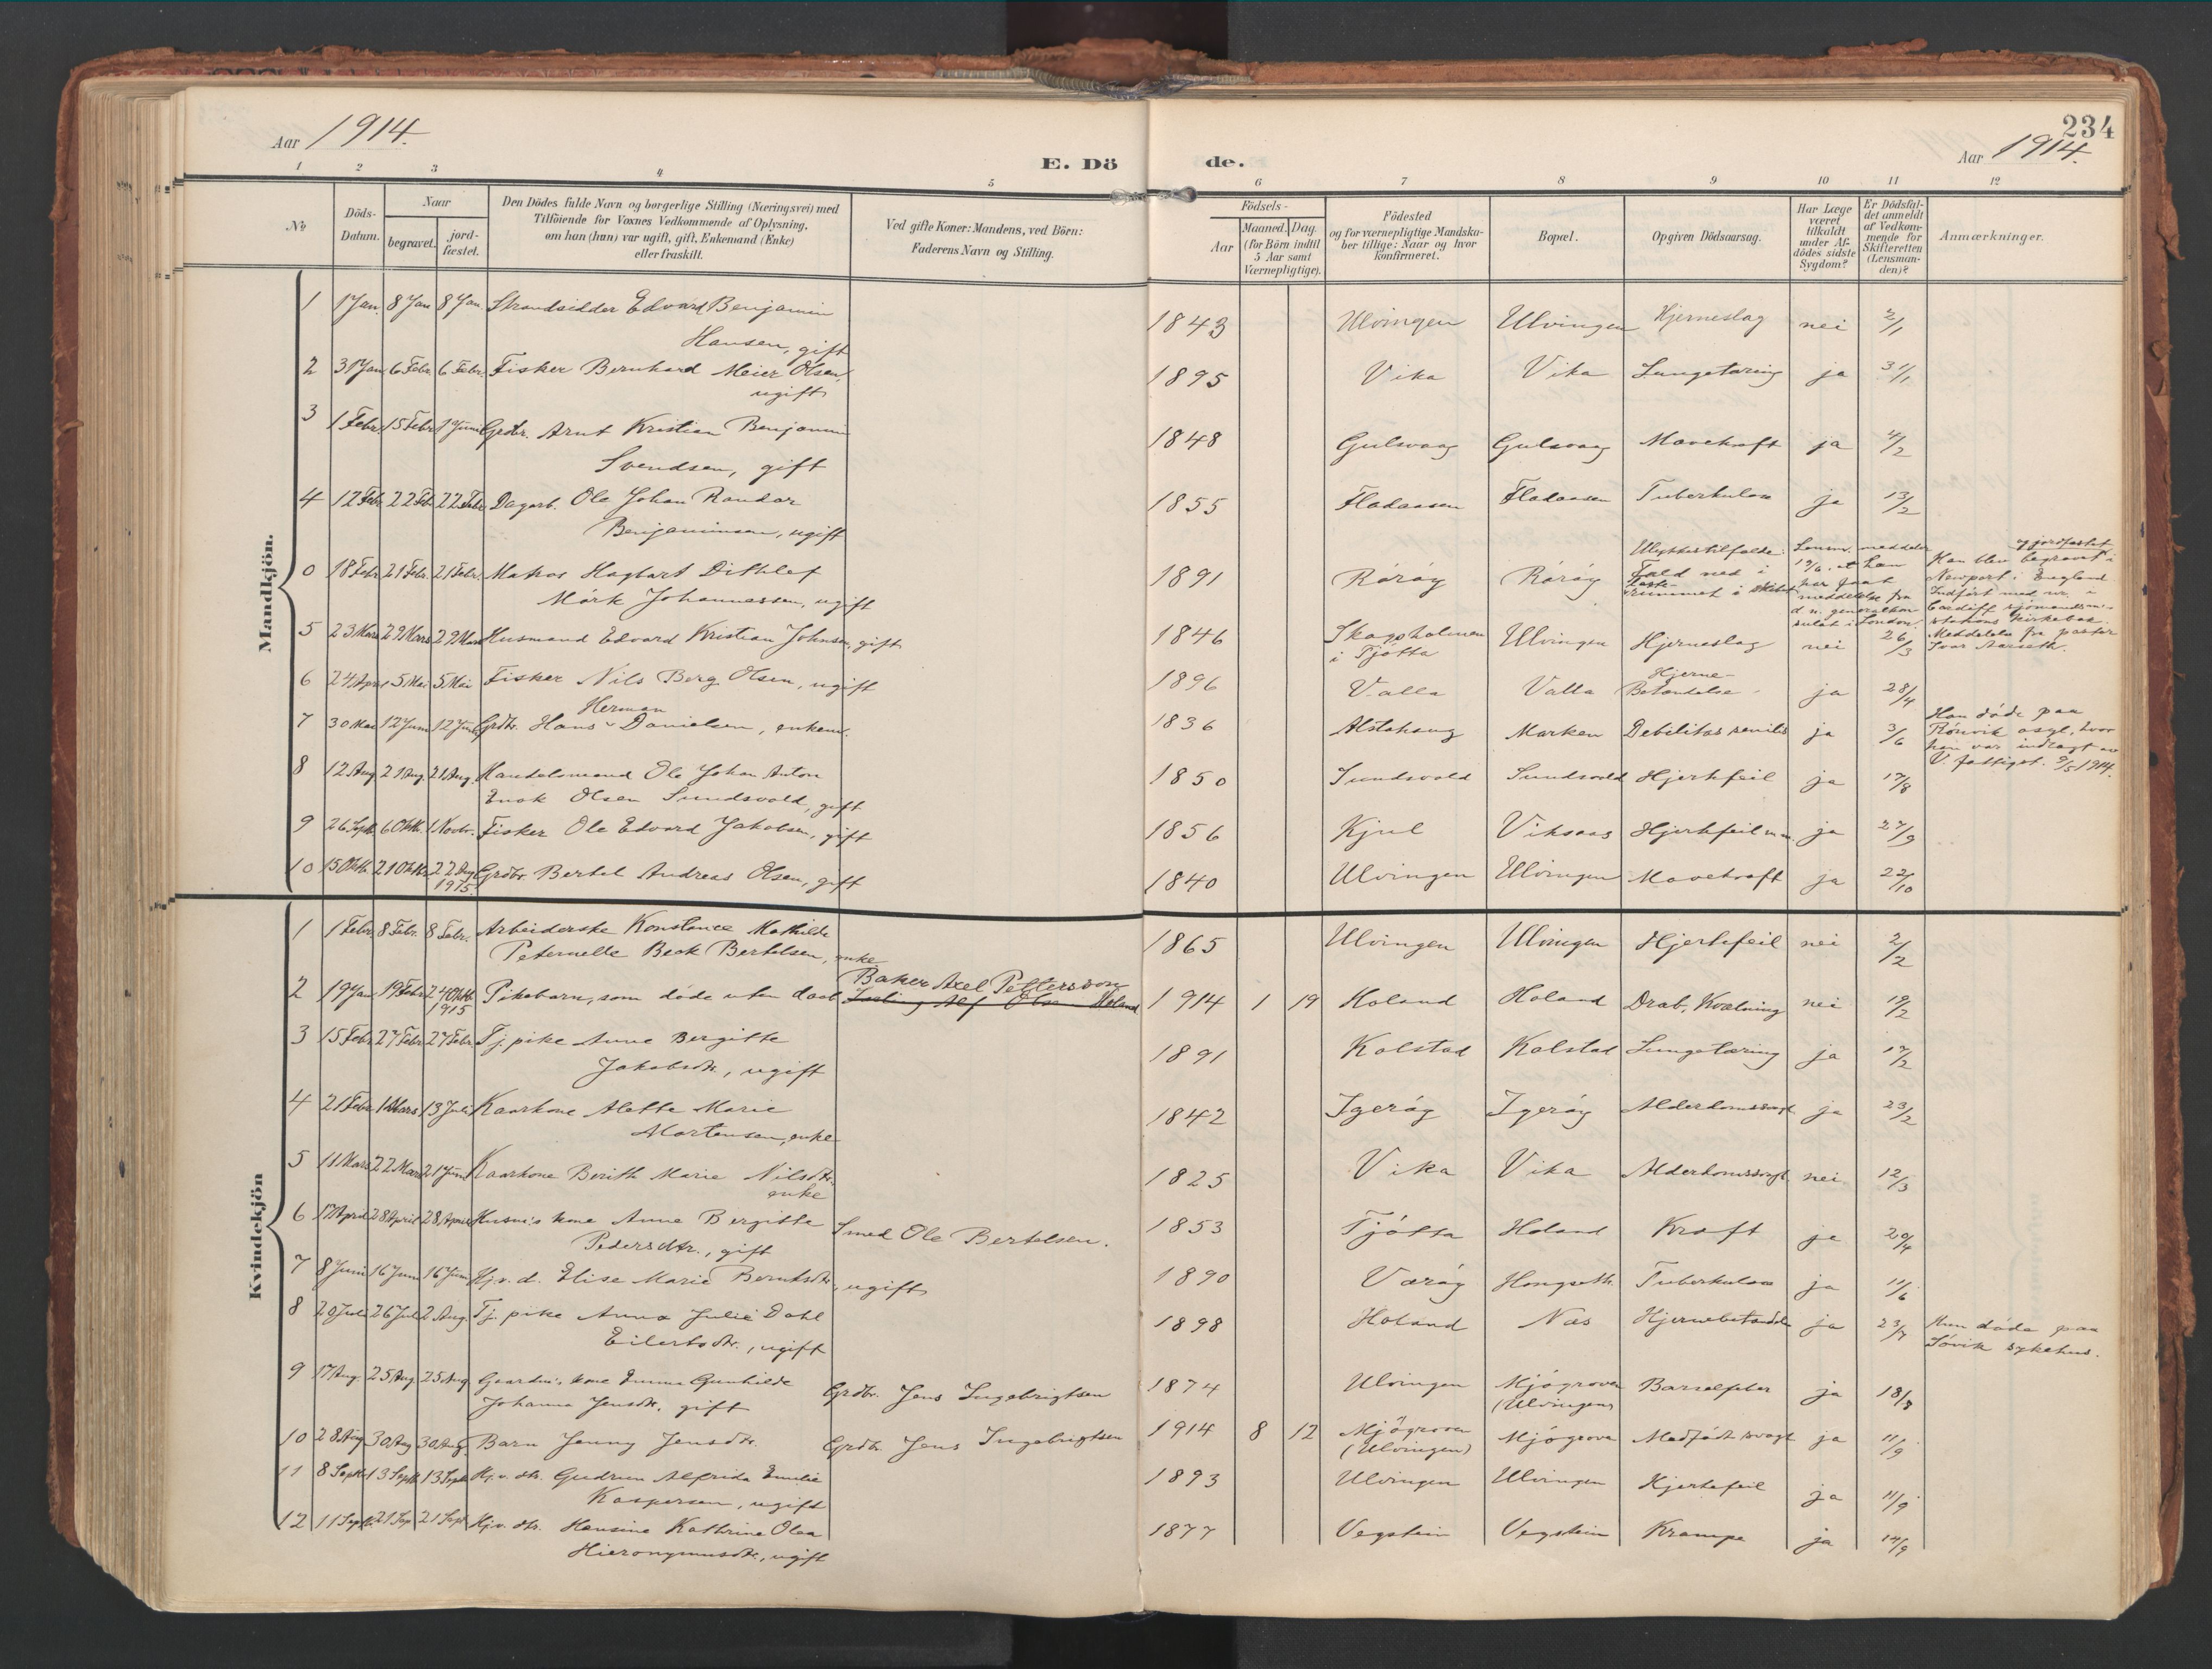 234
Aar 1914.
E. Dö de.
Aar 1914.
1 2 3 4 5 6 7 8 9 10 11 12
№
Döds-
Datum.
Naar
begravet.
jord-
fæstet.
Den Dödes fulde Navn og borgerlige Stilling (Næringsvei) med
Tilföiende for Voxnes Vedkommende af Oplysning,
om han (hun) var ugift, gift, Enkemand (Enke)
eller fraskilt.
Ved gifte Koner: Mandens, ved Börn:
Faderens Navn og Stilling.
Födsels-
Aar
Maaned. Dag.
(for Börn indtil
5 Aar samt
Værnepligtige).
Födested
og for værnepligtige Mandska-
ber tillige: Naar og hvor
konfirmeret.
Bopæl.
Opgiven Dödsaarsag.
Har Læge
været
tilkaldt
under Af-
dödes sidste
Sygdom?
Er Dödsfal-
det anmeldt
af Vedkom-
mende for
Skifteretten
(Lensman-
den)?
Anmærkninger.
Mandkjön.
1 1 Jan. 8 Jan 8 Jan. Strandsidder Edvard Benjamin
Hansen, gift
1843 Ulvingen Ulvingen Hjerneslag nei 2/1
2 31 Jan 6 Febr. 6 Febr. Fisker Bernhard Meier Olsen,
ugift
1895 Vika Vika Lungetæring ja 31/1
3 1 Febr. 15 Febr 1 Juni Grdbr. Arnt Kristian Benjamin
Svendsen, gift
1848 Gulsvaag Gulsvaag Mavekræft ja 4/2
4 12 Febr 22 Feb 22 Febr Dagarb. Ole Johan Randar
Benjaminsen, ugift
1855 Fladaasen Fladaasen Tuberkulose ja 13/2
0 18 Febr. 21 Febr. 21 Febr. Matros Hagbart Dithlef
Mörk Johannessen, ugift
1891 Röröy Röröy Ulykkestilfælde.
Fald ned i
laste-
rummet i skibet
Lensm. meddeler
19/6. at han
har faat
meddelelse fra
d. n. generalkon
sulat i London.
og jordfæstet
Han blev begravet i
Newport i England.
Indfört med nr. i
Cardiff sjömandsmi-
stations kirkebok.
Meddelelse fra pastor
Ivar Aarseth.
5 23 Mars 29 Mars 29 Mars Husmand Edvard Kristian Johnsen, gift
1846 Skogsholmen
i Tjötta
Ulvingen Hjerneslag nei 26/3
6 24 April 5 Mai 5 Mai Fisker Nils Berg Olsen, ugift
1896 Valla Valla Hjerne-
Betændelse ja 28/4
7 30 Mai 12 Juni 12 Juni Grdbr. Hans Herman Danielsen, enkem.
1836 Alstahaug Marken Debilitas senilis ja 3/6
Han döde paa
Rönvik asyl, hvor
han var indlagt av
V. fattigst. 9/5 1914.
8 12 Aug 21 Aug. 21 Aug. Handelsmand Ole Johan Anton
Enok Olsen Sundsvold, gift
1850 Sundsvold Sundsvold Hjertefeil ja 17/8
9 26 Septb. 6 Oktb. 1 Novbr. Fisker Ole Edvard Jakobsen, gift
1856 Kjul Viksaas Hjertefeil m.m. ja 27/9
10 15 Oktb. 21 Oktbr. 22 Aug
1915. Grdbr. Bertel Andreas Olsen, gift
1840 Ulvingen Ulvingen Mavekræft ja 22/10
Kvindekjön
1 1 Febr. 8 Febr. 8 Febr. Arbeiderske Konstance Mathilde
Peternelle Beck Bertelsen, enke
1865 Ulvingen Ulvingen Hjertefeil nei 2/2
2 19 Jan 19 Febr 24 Oktb.
1915 Pikebarn, som döde uten daab
Baker Axel Pettersson
1914 1 19 Holand Holand Drab, Kvælning nei 19/2
3 15 Febr 27 Febr 27 Febr Tj. pike Anne Bergitte
Jakobsdtr., ugift
1891 Kolstad Kolstad Lungetæring ja 17/2
4 21 Febr 1 Mars 13 Juli Kaarkone Alette Marie
Mortensen, enke
1842 Igeröy Igeröy Alderdomssvagh. ja 23/2
5 11 Mars 22 Mars 21 Juni Kaarkone Berith Marie Nilsdtr.
enke
1825 Vika Vika Alderdomssvagh. nei 12/3
6 17 April 28 April 28 April Husm.s kone Anne Bergitte
Pedersdtr., gift
Smed Ole Bertelsen.
1853 Tjötta Holand Kræft ja 20/4
7 8 Juni 16 Juni 16 Juni Hj. v. d. Elise Marie Berntsdtr., ugift
1890 Væröy Hongseth. Tuberkulose ja 11/6
8 20 Juli 26 Juli 2 Aug. Tj. pike Anna Julie Dahl
Eilertsdtr., ugift
1898 Holand Næs Hjernebetændelse ja 23/7
Hun döde paa
Sövik sykehus.
9 17 Aug. 25 Aug. 25 Aug. Gaardm.s kone Emma Gunhilde
Johanna Jensdtr., gift
Grdbr. Jens Ingebrigtsen
1874 Ulvingen Mjögroven
(Ulvingen)
Barselfeber ja 18/8
10 28 Aug 30 Aug 30 Aug. Barn Jenny Jensdtr.
Grdbr. Jens Ingebrigtsen
1914 8 12 Mjögroven
(Ulvingen)
Mjögroven Medfödt svagh. ja 11/9
11 8 Septb. 13 Septb. 13 Septb. Hj. v. dtr. Gudrun Alfrida Emilie
Kaspersen, ugift
1893 Ulvingen Ulvingen Hjertefeil ja 11/9
12 11 Septb. 21 Sep 21 Sept Hj. v. dtr. Hansine Kathrine Olea
Hieronymusdtr., ugift
1877 Vegstein Vegstein Krampe ja 14/9